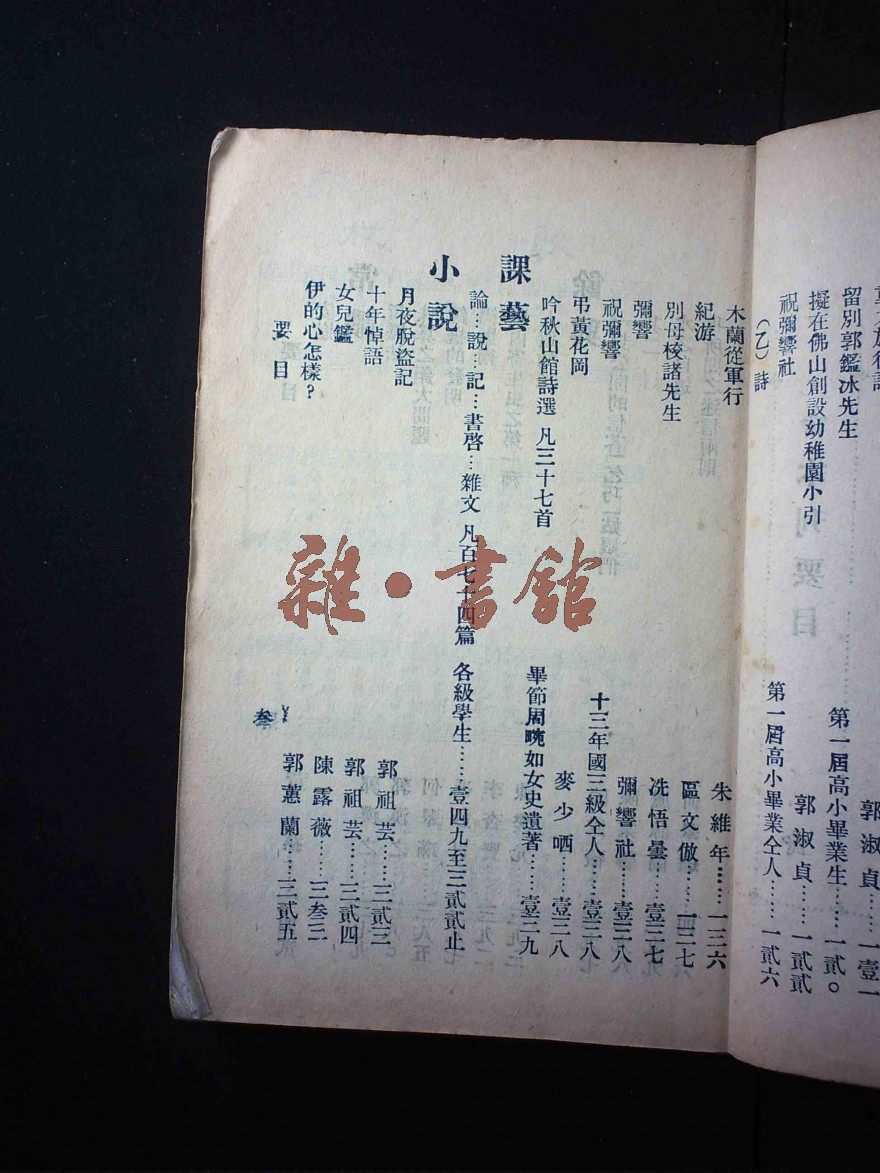 留別郭鑑冰先生 郭淑貞……一壹一
擬在佛山創設幼稚園小引 第一屆高小畢業生……一貳〇
祝彌響社 郭淑貞……一貳貳
(乙)詩 第一屆高小畢業仝人……一貳六
木蘭從軍行 朱維年……一二六
紀游 區文俶……一二七
別母校諸先生 冼悟曇……壹二七
彌響 彌響社……壹二八
祝彌響 十三年國三級仝人……壹二八
弔黃花岡 麥少哂……壹二八
課藝
吟秋山館詩選 凡三十七首 畢節周畹如女史遺著……壹二九
論…說…記…書啓…雜文 凡百七十四篇 各級學生……壹四九至三貳貳止
小說
月夜脫盜記 郭祖芸……三貳三
十年悼語 郭祖芸……三貳四
女兒鑑 陳露薇……三叁二
伊的心怎樣? 郭蕙蘭……三貳五
要目
叁
雜·書館